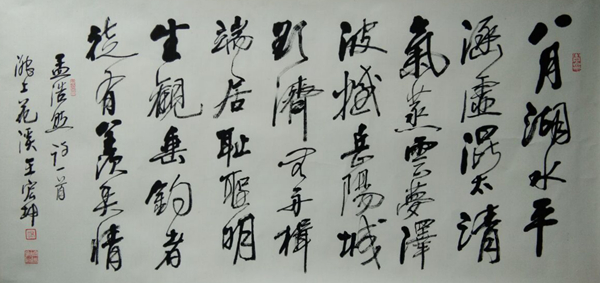 八月湖水平
涵虛混太清
氣蒸雲夢澤
波撼岳陽城
欲濟無舟楫
端居耻聖明
坐觀垂釣者
徒有羨魚情
孟浩然詩一首
上 溪王宏坤